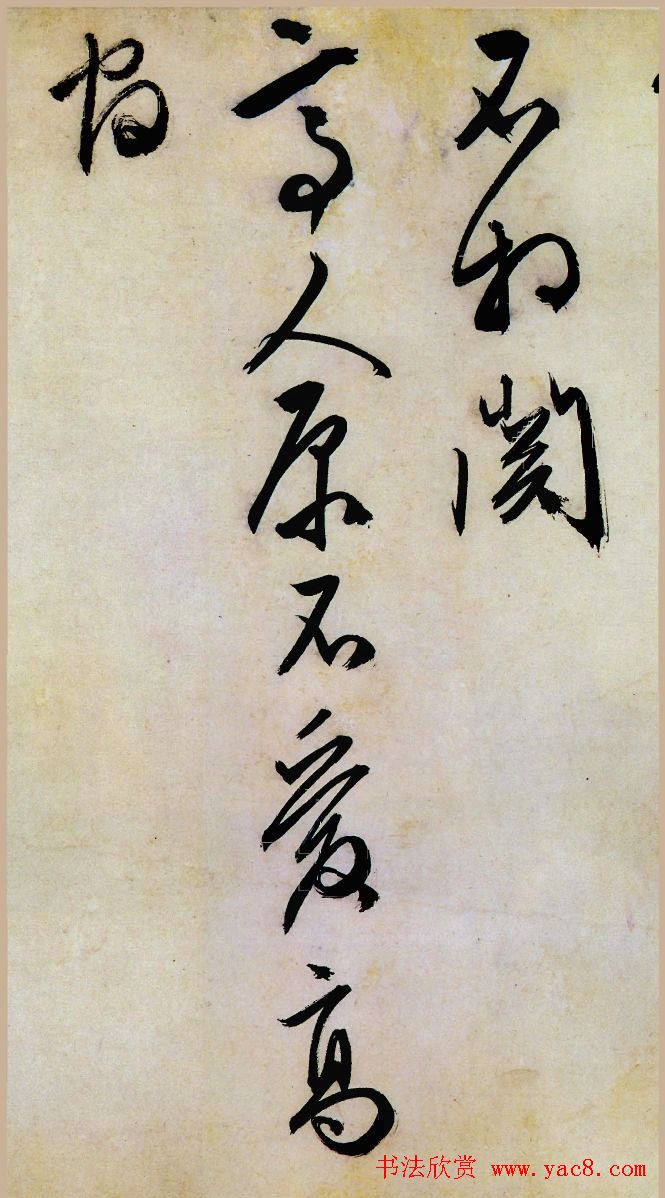 不相關
高人原不愛高
书法欣赏 www.yac8.com